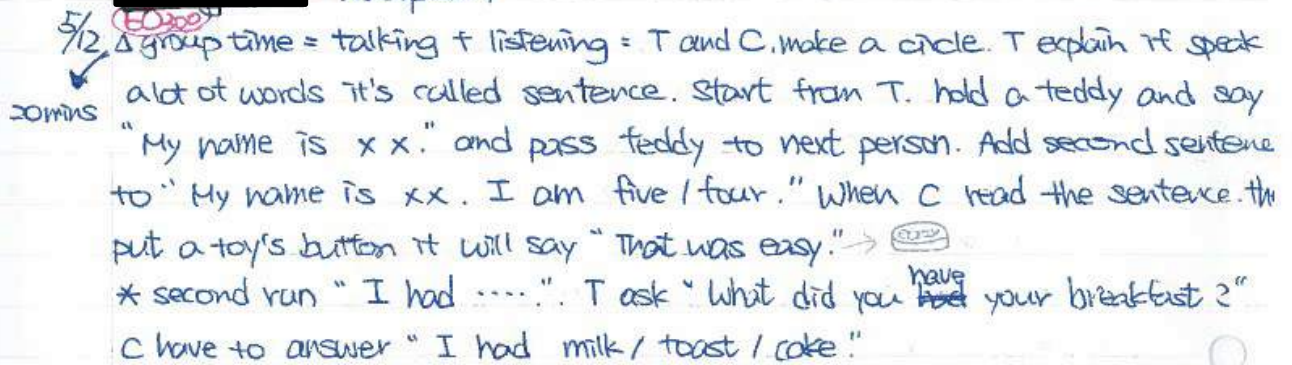 5/12 △ group time = talking + listening = T and C. make a circle. T explain if speak
20mins alot of words it's called sentence. Start from T. hold a teddy and say
"My name is x x." and pass teddy to next person. Add second sentene
to " My name is xx. I am five / four." When C read the sentence. the
put a toy's button it will say " That was easy." → easy
* second run " I had ....". T ask " What did you have your breakfast ?"
C have to answer " I had milk / toast / cake."